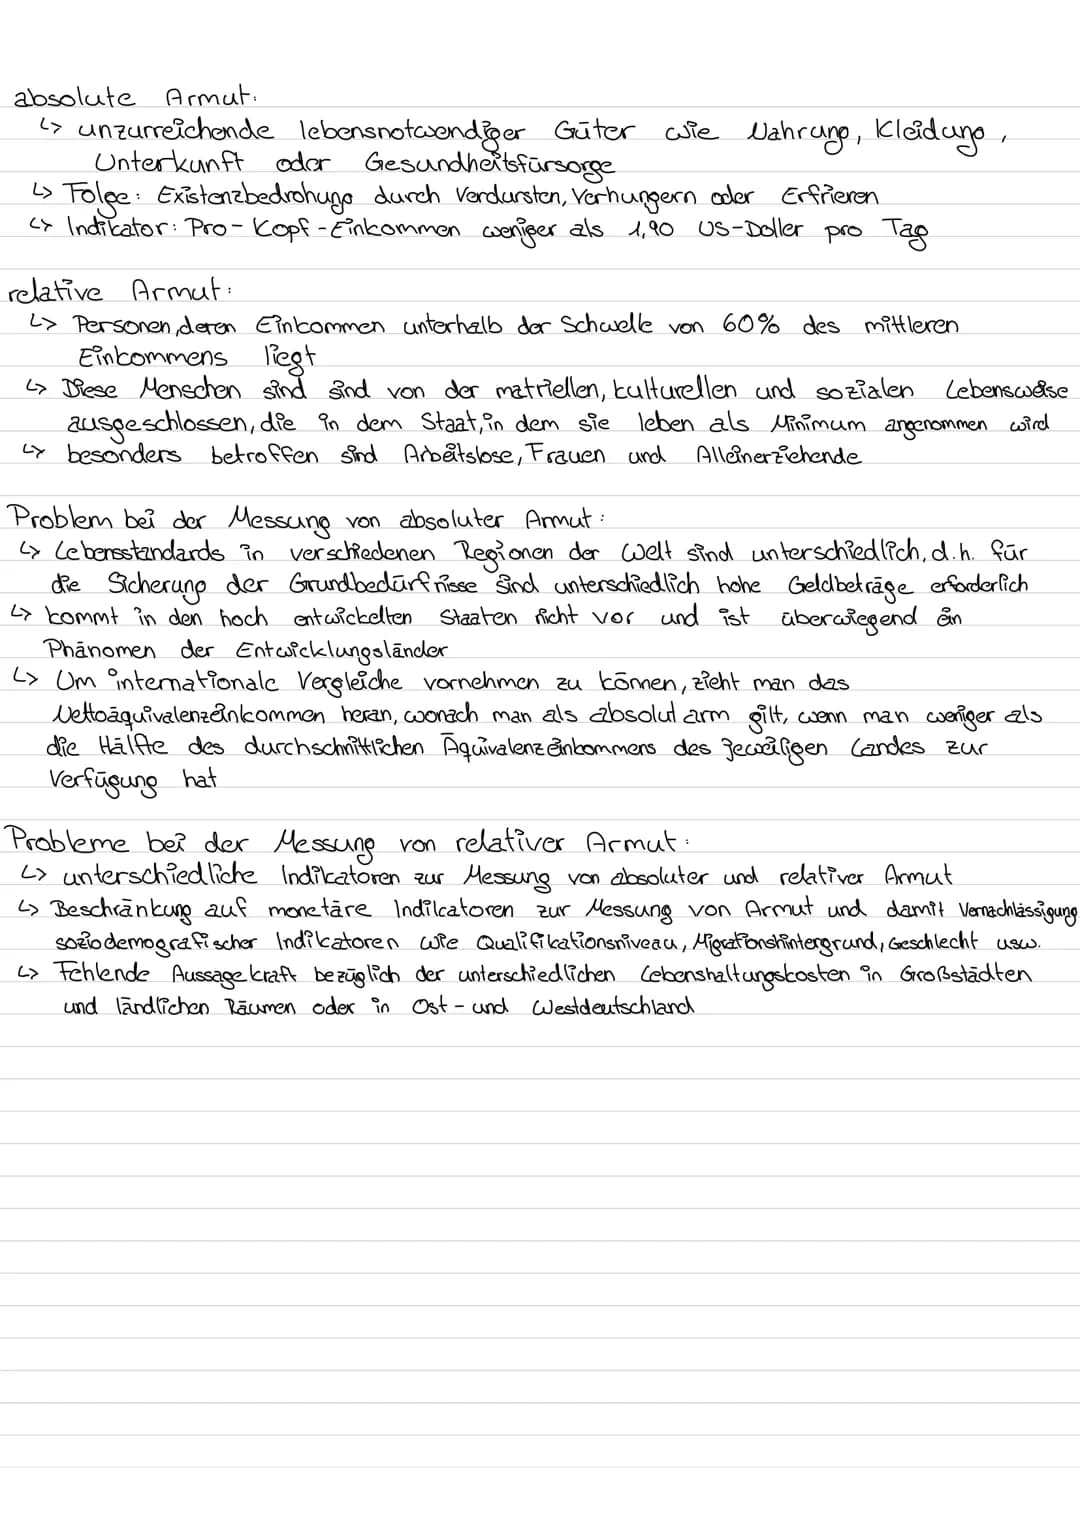 absolute Armut:
↳ unzurreichende lebensnotwendiger Güter wie Nahrung, Kleidung,
Unterkunft oder Gesundheitsfürsorge
↳ Folge: Existenzbedrohung durch Verdursten, Verhungern oder Erfrieren
↳ Indikator: Pro-Kopf-Einkommen weniger als 1,90 US-Doller pro Tag
relative Armut:
↳ Personen, deren Einkommen unterhalb der Schwelle von 60% des mittleren
Einkommens liegt
↳ Diese Menschen sind sind von der matriellen, kulturellen und sozialen Lebensweise
ausgeschlossen, die in dem Staat, in dem sie leben als Minimum angenommen wird
↳ besonders betroffen sind Arbeitslose, Frauen und Alleinerziehende
Problem bei der Messung von absoluter Armut:
↳ Lebensstandards in verschiedenen Regionen der Welt sind unterschiedlich, d.h. für
die Sicherung der Grundbedürfnisse sind unterschiedlich hohe Geldbeträge erforderlich
↳ kommt in den hoch entwickelten Staaten nicht vor und ist überwiegend ein
Phänomen der Entwicklungsländer
↳ Um internationale Vergleiche vornehmen zu können, zieht man das
Nettoäquivalenzeinkommen heran, wonach man als absolut arm gilt, wenn man weniger als
die Hälfte des durchschnittlichen Äquivalenzeinkommens des jeweiligen Landes zur
Verfügung hat
Probleme bei der Messung von relativer Armut:
↳ unterschiedliche Indikatoren zur Messung von absoluter und relativer Armut
↳ Beschränkung auf monetäre Indikatoren zur Messung von Armut und damit Vernachlässigung
soziodemografischer Indikatoren wie Qualifikationsniveau, Migrationshintergrund, Geschlecht usw.
↳ Fehlende Aussagekraft bezüglich der unterschiedlichen Lebenshaltungskosten in Großstädten
und ländlichen Räumen oder in Ost- und Westdeutschland